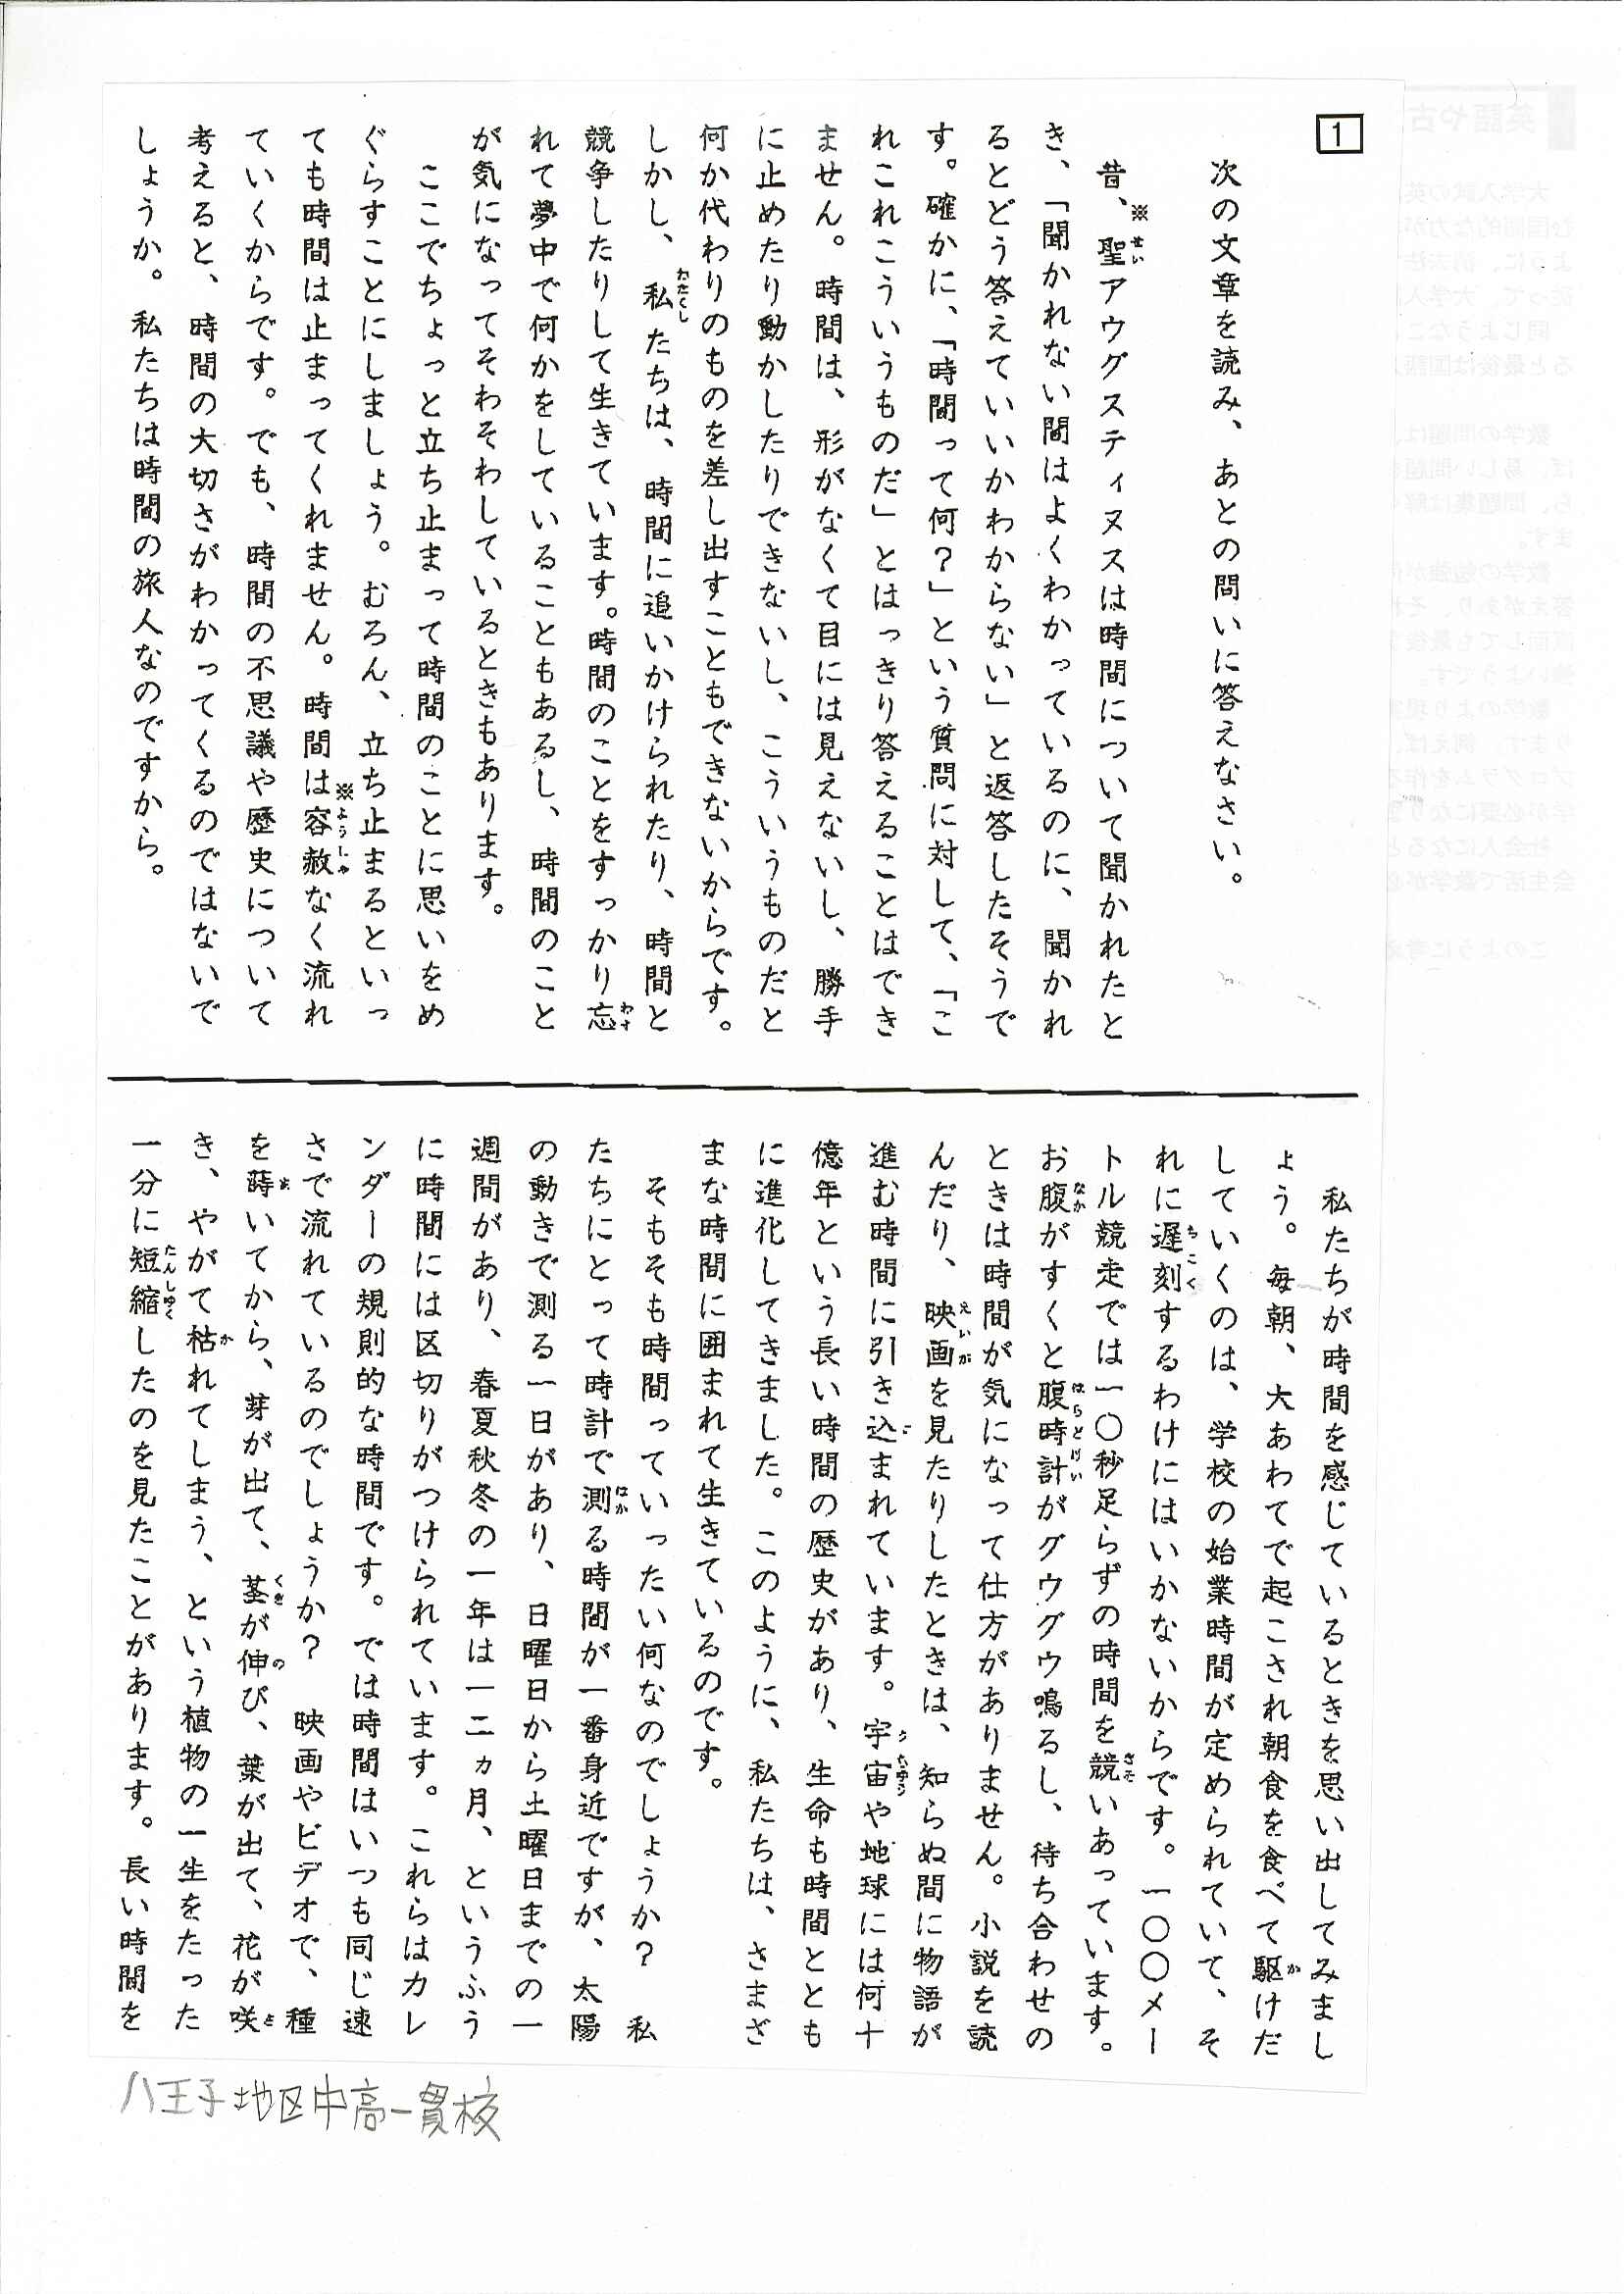 1
次の文章を読み、あとの問いに答えなさい。
昔、※聖アウグスティヌスは時間について聞かれたと
き、「聞かれない間はよくわかっているのに、聞かれ
るとどう答えていいかわからない」と返答したそうで
す。確かに、「時間って何？」という質問に対して、「こ
れこれこういうものだ」とはっきり答えることはでき
ません。時間は、形がなくて目には見えないし、勝手
に止めたり動かしたりできないし、こういうものだと
何か代わりのものを差し出すこともできないからです。
しかし、私たちは、時間に追いかけられたり、時間と
競争したりして生きています。時間のことをすっかり忘
れて夢中で何かをしていることもあるし、時間のこと
が気になってそわそわしているときもあります。
ここでちょっと立ち止まって時間のことに思いをめ
ぐらすことにしましょう。むろん、立ち止まるといっ
ても時間は止まってくれません。時間は※容赦なく流れ
ていくからです。でも、時間の不思議や歴史について
考えると、時間の大切さがわかってくるのではないで
しょうか。私たちは時間の旅人なのですから。
私たちが時間を感じているときを思い出してみまし
ょう。毎朝、大あわてで起こされ朝食を食べて駆けだ
していくのは、学校の始業時間が定められていて、そ
れに遅刻するわけにはいかないからです。一〇〇メー
トル競走では一〇秒足らずの時間を競いあっています。
お腹がすくと腹時計がグウグウ鳴るし、待ち合わせの
ときは時間が気になって仕方がありません。小説を読
んだり、映画を見たりしたときは、知らぬ間に物語が
進む時間に引き込まれています。宇宙や地球には何十
億年という長い時間の歴史があり、生命も時間ととも
に進化してきました。このように、私たちは、さまざ
まな時間に囲まれて生きているのです。
そもそも時間っていったい何なのでしょうか？　私
たちにとって時計で測る時間が一番身近ですが、太陽
の動きで測る一日があり、日曜日から土曜日までの一
週間があり、春夏秋冬の一年は一二ヵ月、というふう
に時間には区切りがつけられています。これらはカレ
ンダーの規則的な時間です。では時間はいつも同じ速
さで流れているのでしょうか？　映画やビデオで、種
を蒔いてから、芽が出て、茎が伸び、葉が出て、花が咲
き、やがて枯れてしまう、という植物の一生をたった
一分に短縮したのを見たことがあります。長い時間を
八王子地区中高一貫校